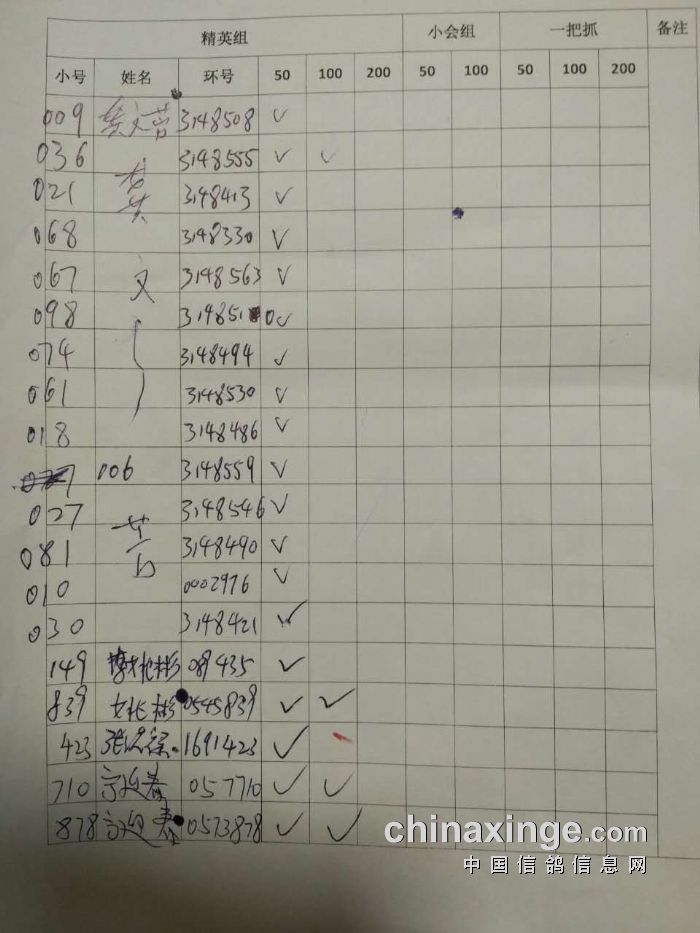 精英组 小会组 一把抓 备注
小号 姓名 环号 50 100 200 50 100 50 100 200
009 3148508 ✓
036 3148555 ✓ ✓
021 3148413 ✓
068 3148330 ✓
067 文 3148563 ✓
098 314851 0 ✓
074 3148494 ✓
061 3148530 ✓
018 3148486 ✓
006 3148559 ✓
027 3148546 ✓
081 3148490 ✓
010 0002976 ✓
030 3148421 ✓
149 089435 ✓
839 0545839 ✓ ✓
423 1691423 ✓
710 057710 ✓ ✓
878 0573878 ✓ ✓
chinaxinge.com
中国信鸽信息网